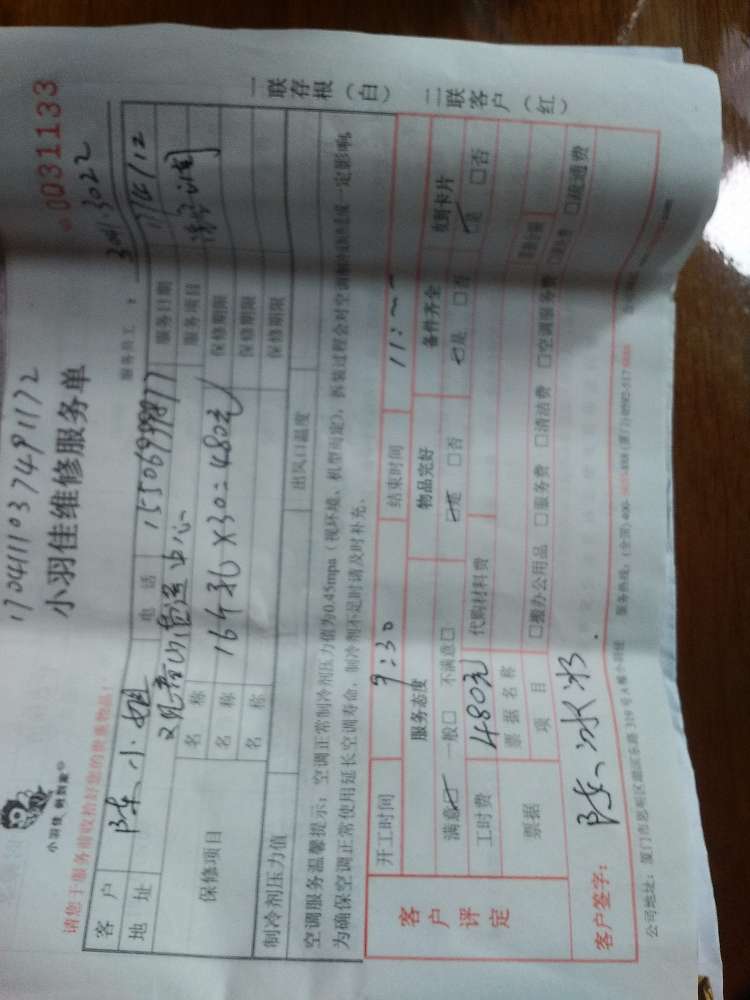 17041110374911172
No 0031133
小羽佳维修服务单
小羽佳 到到家
请您于服务前收拾好您的贵重物品!
服务员工 3041.3022
客户 陈小姐 电话 15506999877 服务日期 17/4/12
地址 观音山营运中心 服务项目
保修项目 名称 16个孔×30=480元 保修期限
名称 保修期限
名称 保修期限
制冷剂压力值 出风口温度
空调服务温馨提示:空调正常制冷剂压力值为0.45mpa(视环境、机型而定),拆装过程会对空调制冷剂造成一定影响,
为确保空调正常使用延长空调寿命,制冷剂不足时请及时补充。
一联存根(白)
二联客户(红)
客户评定
开工时间 9:30 结束时间 11:
服务态度 物品完好 备件齐全 收到卡片
满意☑ 一般□ 不满意□ ☑是 □否 ☑是 □否 ☑是 □否
工时费 480元 代购材料费
票据 票据名称
项目 □搬办公用品 □服务费 □清洁费 □空调服务费 □疏通费
客户签字: 陈冰冰.
公司地址:厦门市思明区湖滨东路319号A幢 服务热线:(全国)400 (厦门)0592-517